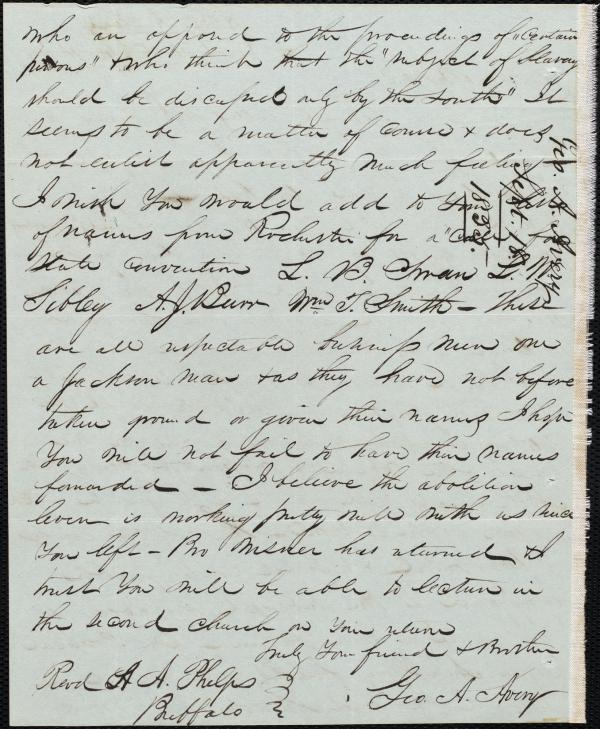 who are opposed to the proceedings of "certain
persons" & who think that the "subject of Slavery
should be discussed only by the South" It
seems to be a matter of course & does
not enlist apparently much feeling
I wish You would add to your list
of names from Rochester for a "Call" for
State Convention L. B. Swan L. W.
Sibley A. J. Burr Wm T. Smith – These
are all respectable business men one
a Jackson man & as they have not before
taken ground or given their names I hope
You will not fail to have their names
forwarded – I believe the abolition
leven is working pretty well with us since
You left – Bro Wisner has returned & I
trust You will be able to lecture in
the second church on Your return
Truly Your friend & Brother
Geo. A. Avery
Revd A A. Phelps
Buffalo
Geo. A. Avery
Sept. 18,
1835.